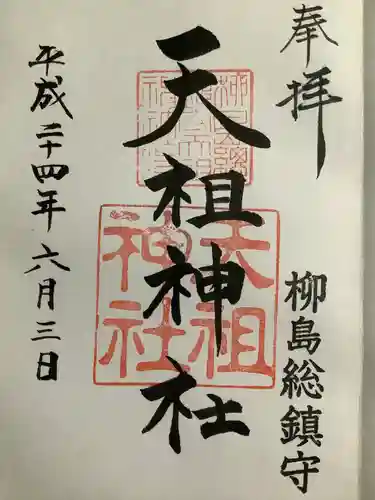 奉拝
柳島総鎮守
天祖神社
天祖神社
平成二十四年六月三日